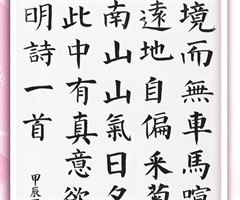 境而無車馬喧
遠地自偏采菊
南山山氣日夕
此中有真意欲
明詩一首
甲辰